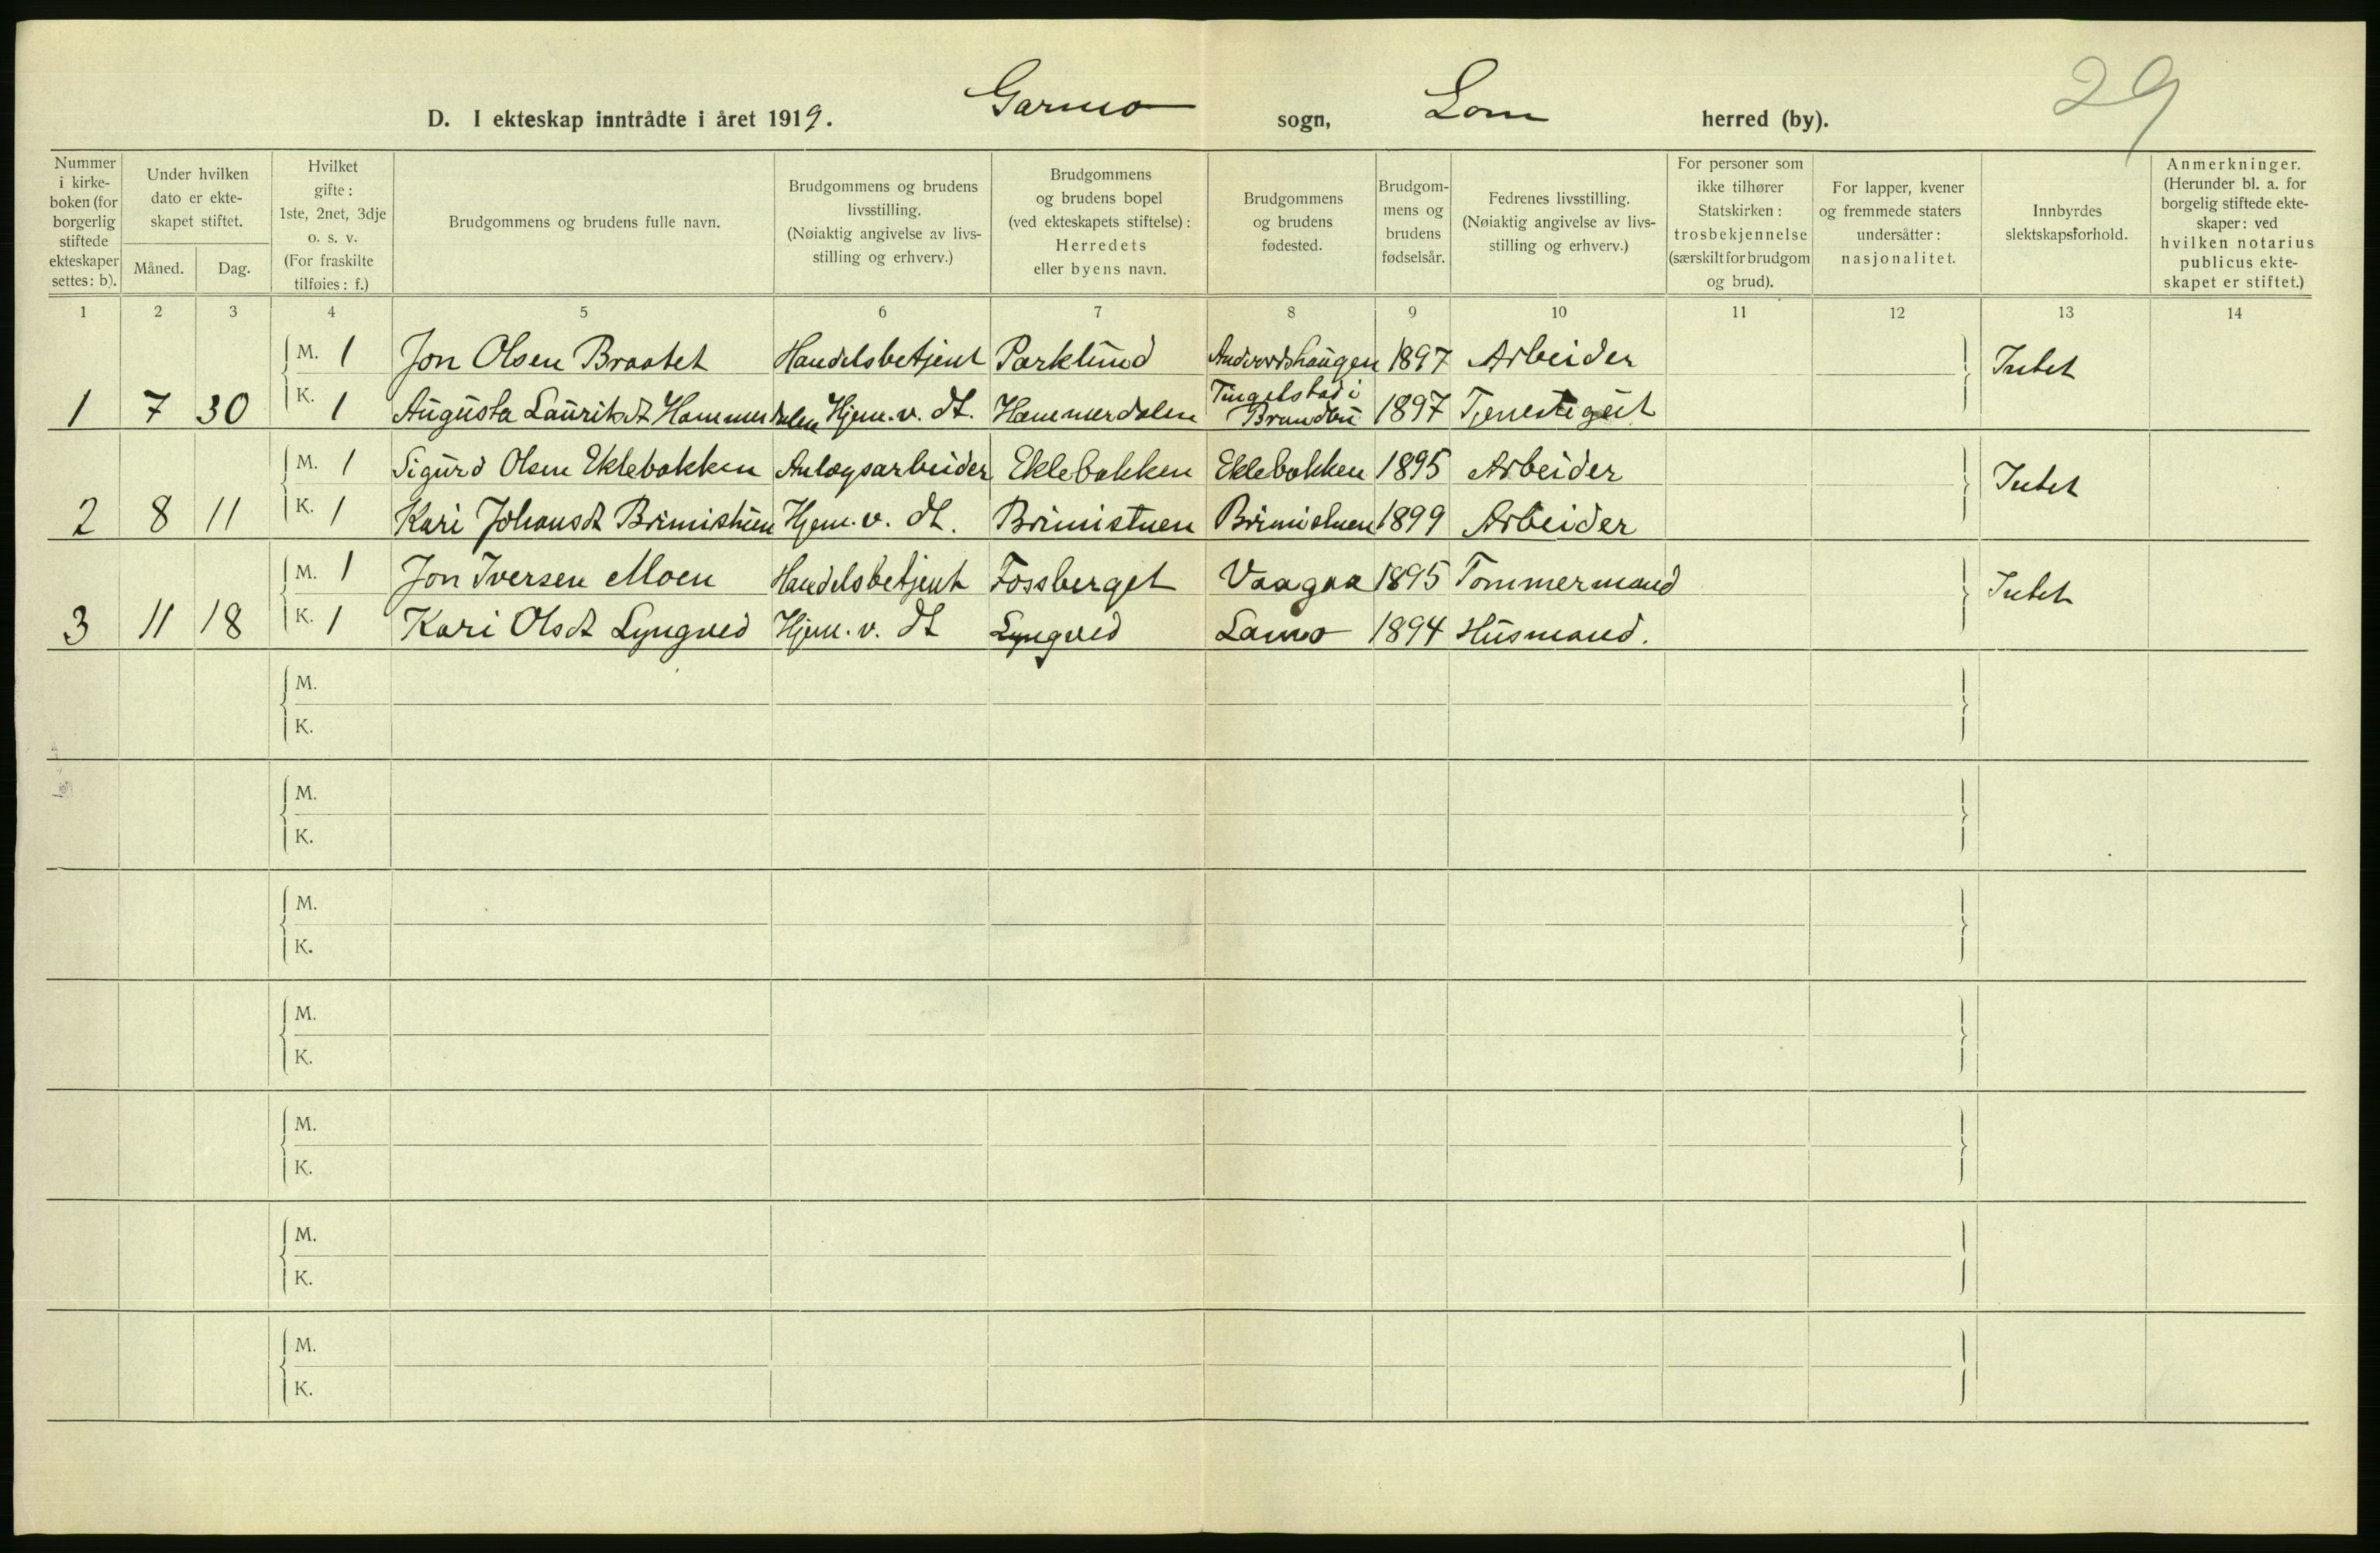 29
D. I ekteskap inntrådte i året 1919. Garmo sogn, Lom herred (by).
Nummer i kirke-boken (for borgerlig stiftede ekteskaper settes: b).
Under hvilken dato er ekte-skapet stiftet.
Måned. Dag.
Hvilket gifte: 1ste, 2net, 3dje o. s. v. (For fraskilte tilføies: f.)
Brudgommens og brudens fulle navn.
Brudgommens og brudens livsstilling. (Nøiaktig angivelse av livs-stilling og erhverv.)
Brudgommens og brudens bopel (ved ekteskapets stiftelse): Herredets eller byens navn.
Brudgommens og brudens fødested.
Brudgom-mens og brudens fødselsår.
Fedrenes livsstilling. (Nøiaktig angivelse av livs-stilling og erhverv.)
For personer som ikke tilhører Statskirken: trosbekjennelse (særskilt for brudgom og brud).
For lapper, kvener og fremmede staters undersåtter: nasjonalitet.
Innbyrdes slektskapsforhold.
Anmerkninger. (Herunder bl. a. for borgelig stiftede ekte-skaper: ved hvilken notarius publicus ekte-skapet er stiftet.)
1 2 3 4 5 6 7 8 9 10 11 12 13 14
M. 1 Jon Olsen Braatet Handelsbetjent Parklund 1897 Arbeider Intet
1 7 30 K. 1 Augusta Hammerdalen Hjem. v. dt. Hammerdalen Tingelstad i Brandbu 1897 Tjenestegut
M. 1 Sigurd Olsen Eklebakken Anlægsarbeider Eklebakken Eklebakken 1895 Arbeider Intet
2 8 11 K. 1 Kari Johansdt Brimistuen Hjem. v. dt. Brimistuen Brimistuen 1899 Arbeider
M. 1 Jon Iversen Moen Handelsbetjent Fossberget Vaagaa 1895 Tømmermand Intet
3 11 18 K. 1 Kari Olsdt Lyngved Hjem. v. dt Lyngved 1894 Husmand.
M.
K.
M.
K.
M.
K.
M.
K.
M.
K.
M.
K.
M.
K.